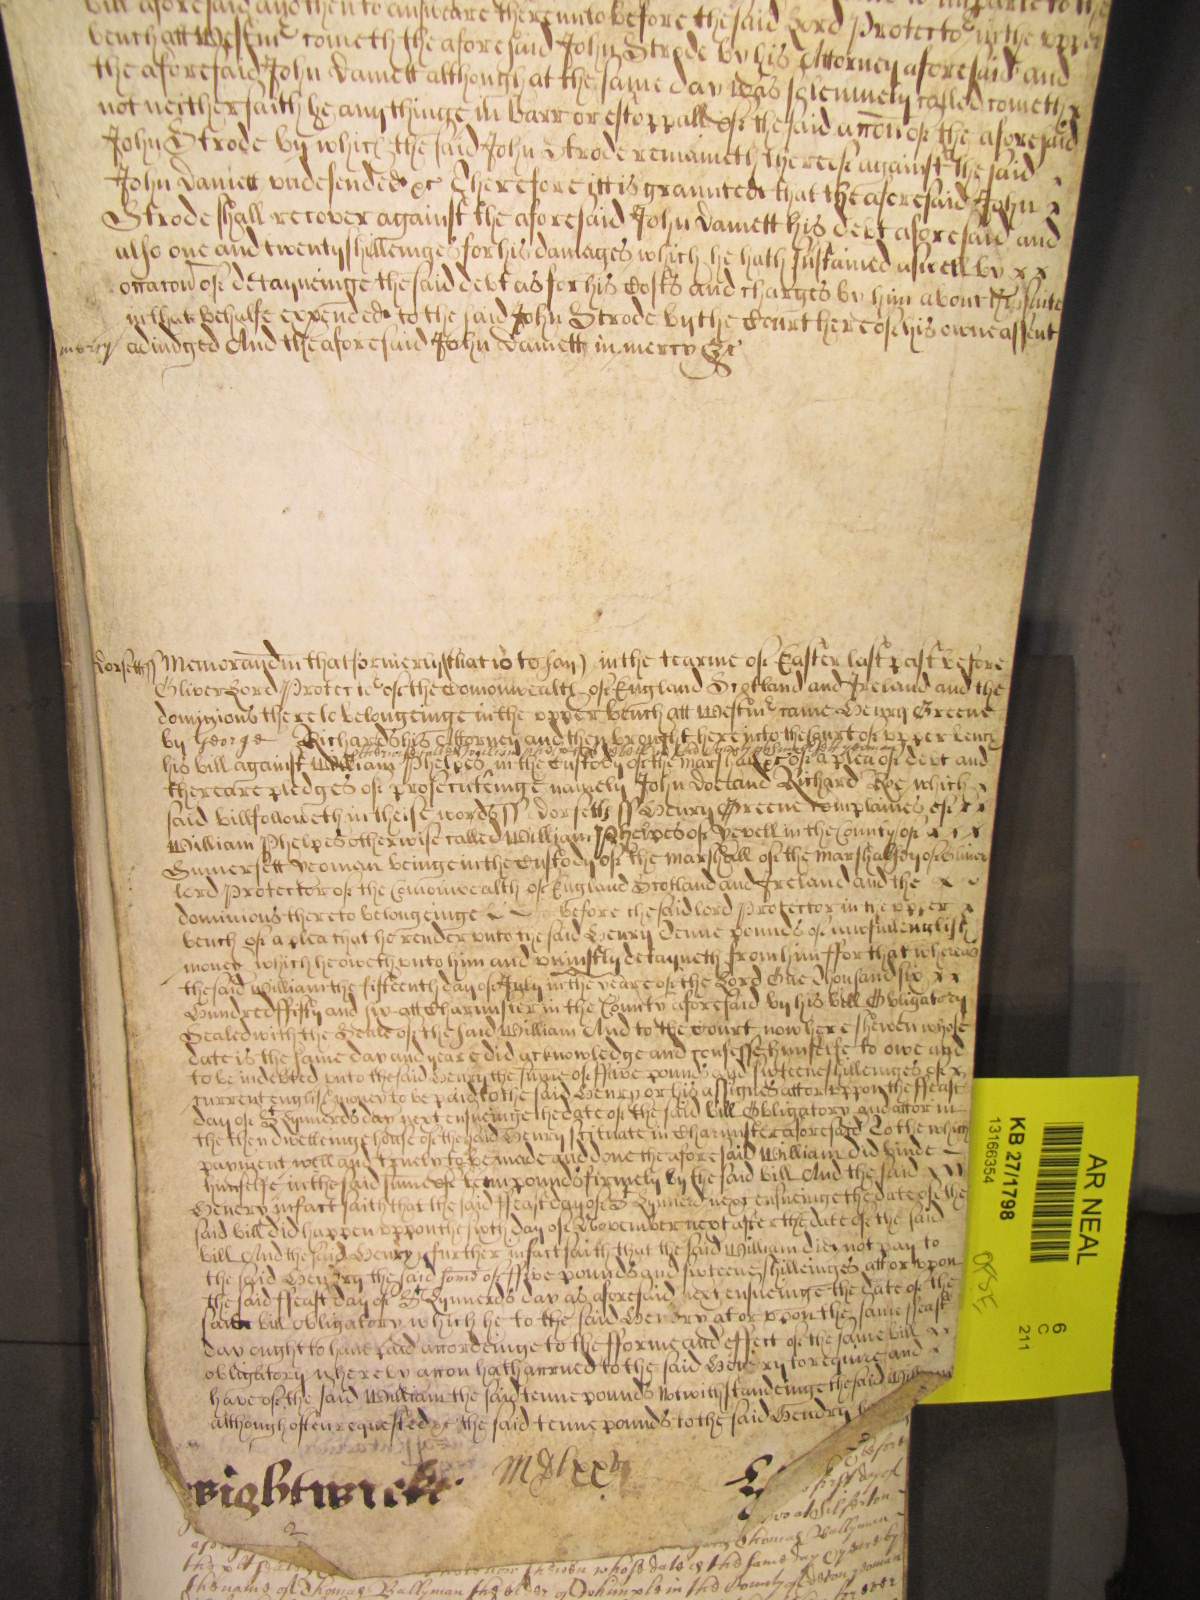 bench att Westmr cometh the aforesaid John Strode by his Attorney aforesaid and
the aforesaid John Damett although at the same day was solemnely called cometh
not neither saith he any thinge in barr or estoppall of the said accon of the aforesaid
John Strode by which the said John Strode remaineth thereof against the said
John Damett undefended &c Therefore itt is graunted that the aforesaid John
Strode shall recover against the aforesaid John Damett his debt aforesaid and
also one and twenty shilleinges for his damages which he hath sustained aswell by
occacon of detayneinge the said debt as for his Costs and charges by him about his suite
in that behalfe expended to the said John Strode by the Court here of his owne assent
mercy adiudged And the aforesaid John Damett in mercy &c
Dorsett ss Memorandm that formerly (that is to say) in the tearme of Easter last past before
Oliver Lord Protector of the Comonwealth of England Scotland and Ireland and the
dominions thereto belongeinge in the upper bench att Westmr came Henry Greene
by George Richards his Attorney and then brought here into the Court of upper bench
his bill against William Phelpes in the Custody of the marshall &c of a plea of debt and
there are pledges of prosecuteinge namely John Doe and Richard Roe which
said bill followeth in theise words ss Dorsett ss Henry Greene complaines of
William Phelpes otherwise called William Phelpes of Yevell in the County of
Somersett yeoman beinge in the Custody of the marshall of the marshalsey of Oliver
lord Protector of the Comonwealth of England Scotland and Ireland and the
dominions thereto belongeinge before the said lord Protector in the upper
bench of a plea that he render unto the said Henry Tenne pounds of lawfull english
money which he oweth unto him and uniustly detayneth from him ffor that whereas
the said William the fifteenth day of July in the yeare of the Lord One thousand six
Hundred ffifty and six att Charmister in the County aforesaid by his bill Obligatory
Sealed with the Seale of the said William And to the Court now here shewen whose
date is the same day and yeare did acknowledge and confesse himselfe to owe and
to be indebted unto the said Henry the sume of ffive pounds and sixteene shilleinges of
current english money to be paid to the said Henry or his assignes att or uppon the ffeast
day of St Lynnerds day next ensueinge the date of the said bill Obligatory and att or in
the then dwelleinge house of the said Henry scituate in Charmister aforesaid To the which
payment well and truely to be made and done the aforesaid William did binde
himselfe in the said sume of tenn pounds firmely by the said bill And the said
Henery in fact saith that the said ffeast day of St Lynnerd next ensueinge the date of the
said bill did happen uppon the sixth day of November next after the date of the said
bill And the said Henry further in fact saith that the said William did not pay to
the said Henry the said some of ffive pounds and sixteene shilleinges att or upon
the said ffeast day of St Lynnerds day as aforesaid next ensueinge the date of the
said bill obligatory which he to the said Henry at or upon the same ffeast
day ought to have paid accordeinge to the fforme and effect of the same bill
obligatory whereby accon hath accrued to the said Henery to require and
have of the said William the said tenne pounds Notwithstandeinge the said
although often requested &c the said tenne pounds to the said Hendry
wightwick
2
whose date is the same day
the name of Thomas Ballyman the elder of in the County of Devon yeoman
AR NEAL
KB 27/1798
13166354
6
C
211